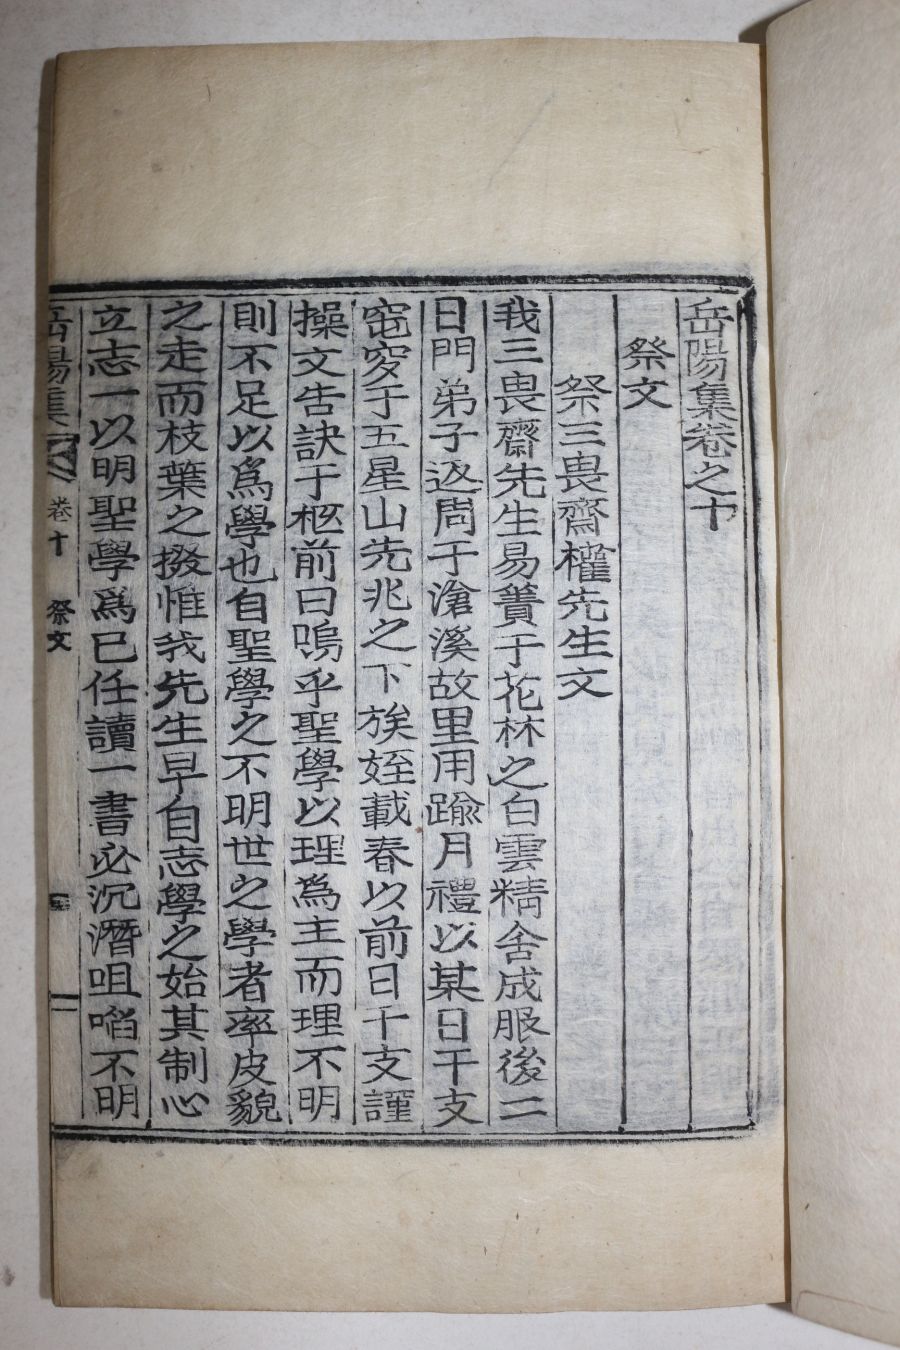 岳陽集卷之十
祭文
祭三畏齋權先生文
我三畏齋先生易簀于花林之白雲精舍成服後二
日門弟子返周于滄溪故里用踰月禮以某日干支
窀穸于五星山先兆之下族姪載春以前日干支謹
操文告訣于柩前曰嗚乎聖學以理爲主而理不明
則不足以爲學也自聖學之不明世之學者率皮貌
之走而枝葉之撥惟我先生早自志學之始其制心
立志一以明聖學爲已任讀一書必沉潛咀㗖不明
岳陽集 卷十 祭文